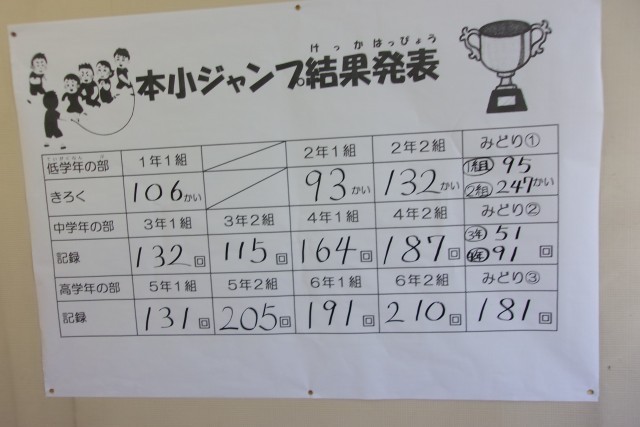 けっかはっぴょう
本小ジャンプ結果発表
ていがくねん ぶ
低学年の部 1年1組 2年1組 2年2組 みどり①
きろく 106かい 93かい 132かい 1組 95 2組 247かい
中学年の部 3年1組 3年2組 4年1組 4年2組 みどり②
記録 132回 115回 164回 187回 3年 51 4年 91回
高学年の部 5年1組 5年2組 6年1組 6年2組 みどり③
記録 131回 205回 191回 210回 181回